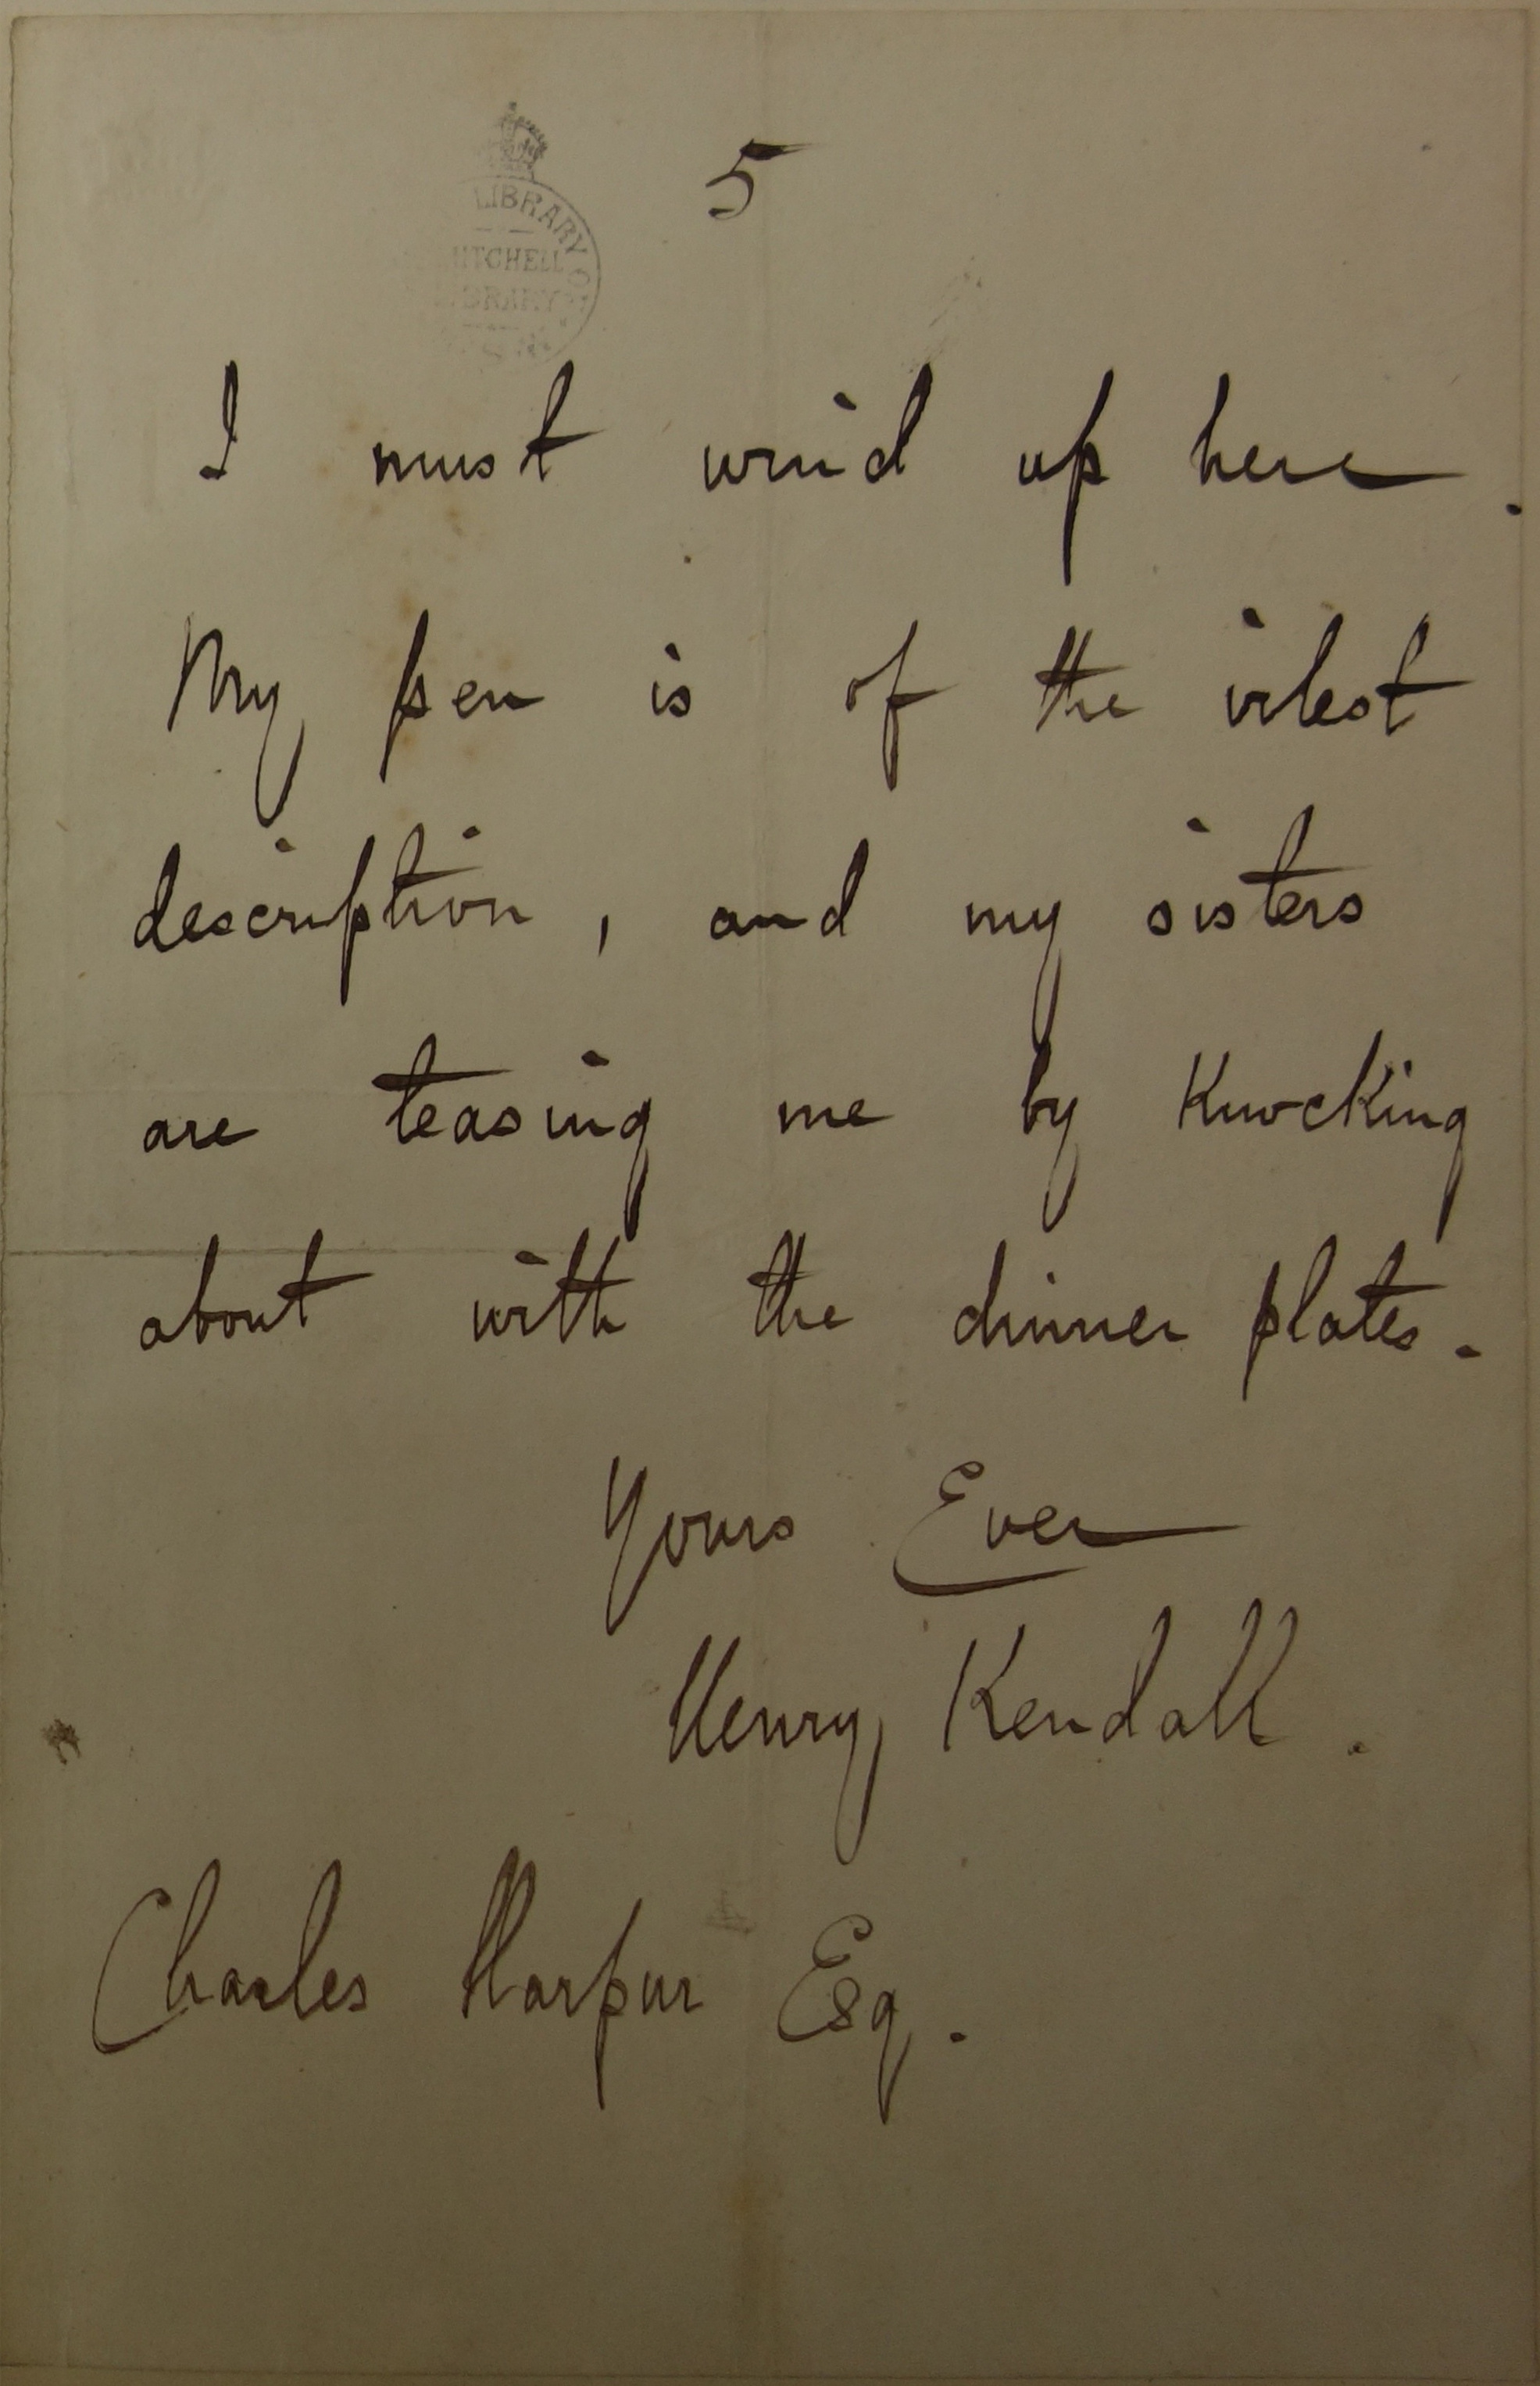 5
LIBRARY O
MITCHELL
LIBRARY
I must wind up here.
My pen is of the vilest
description, and my sisters
are teasing me by Knocking
about with the dinner plates.
Yours Ever
Henry Kendall.
Charles Harpur Esq.